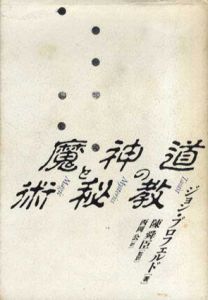 道教の神秘と魔術
Taoist
Mysteries
Magic
ジョン・ブロフェルド
陳舜臣
西岡公